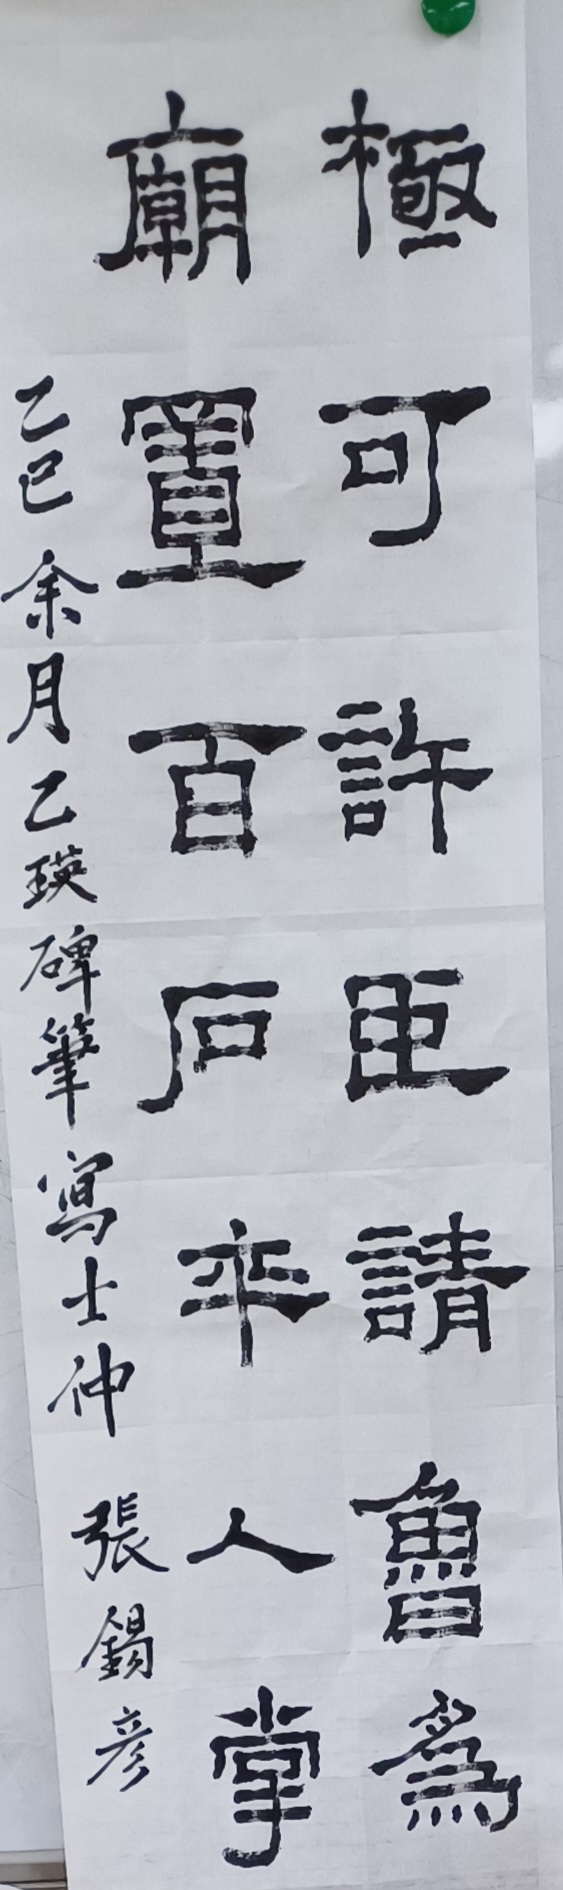 極可許臣請魯爲
廟置百石卒人掌
乙巳余月乙瑛碑筆寫士仲 張錫彥